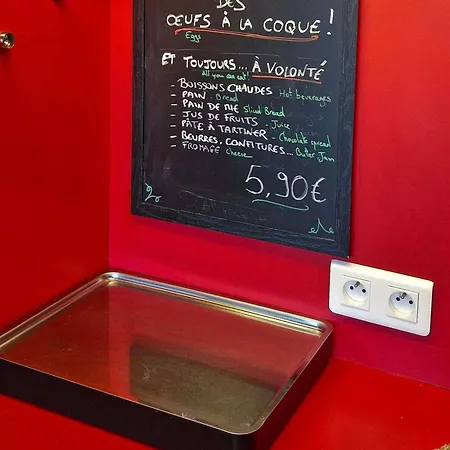 DES
ŒUFS À LA COQUE !
Eggs
ET TOUJOURS... À VOLONTÉ
all you can eat!
- BOISSONS CHAUDES Hot beverages
- PAIN - Bread
- PAIN DE MIE Sliced Bread
- JUS DE FRUITS - Juice
- PÂTE À TARTINER - Chocolate spread
- BEURRES, CONFITURES... Butter Jam
- FROMAGE Cheese
5,90€